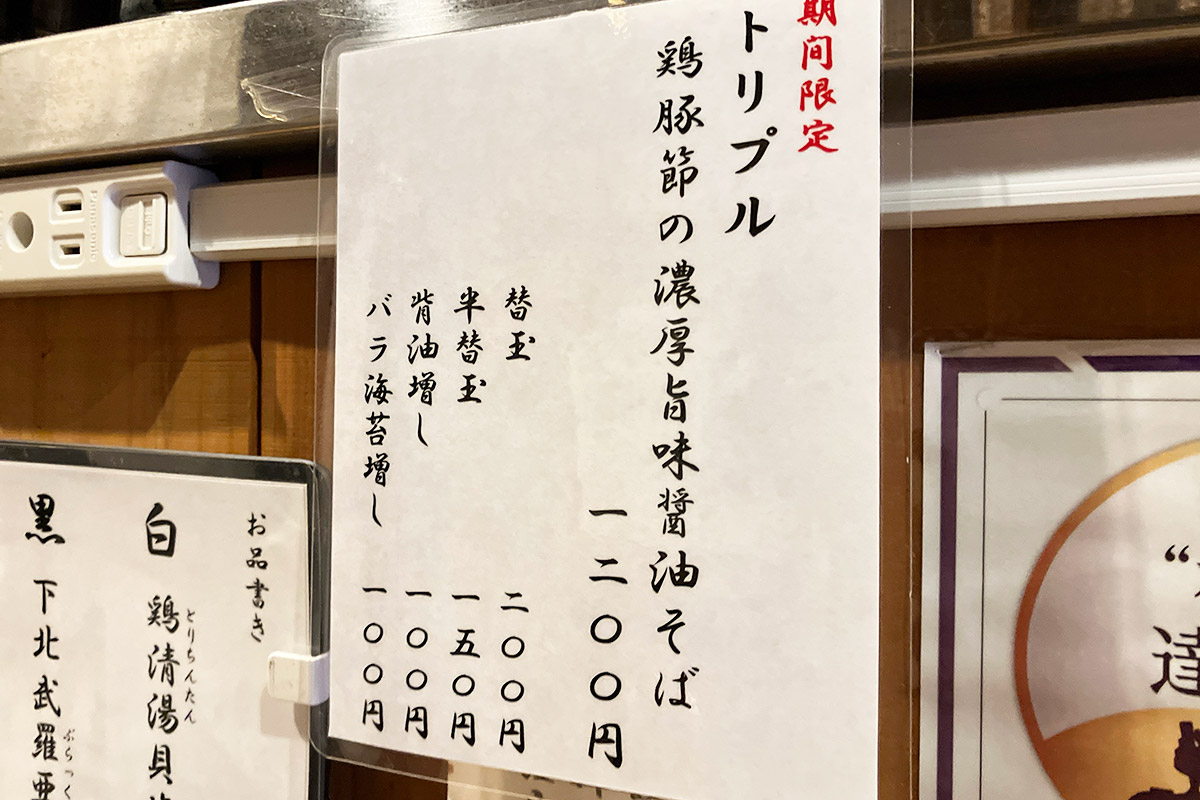 期間限定
トリプル
鶏豚節の濃厚旨味醤油そば
一二〇〇円
替玉 二〇〇円
半替玉 一五〇円
背油増し 一〇〇円
バラ海苔増し 一〇〇円
お品書き
白 鶏清湯貝
とりちんたん
黒 下北武羅亜
ぶらっく
Panasonic
達